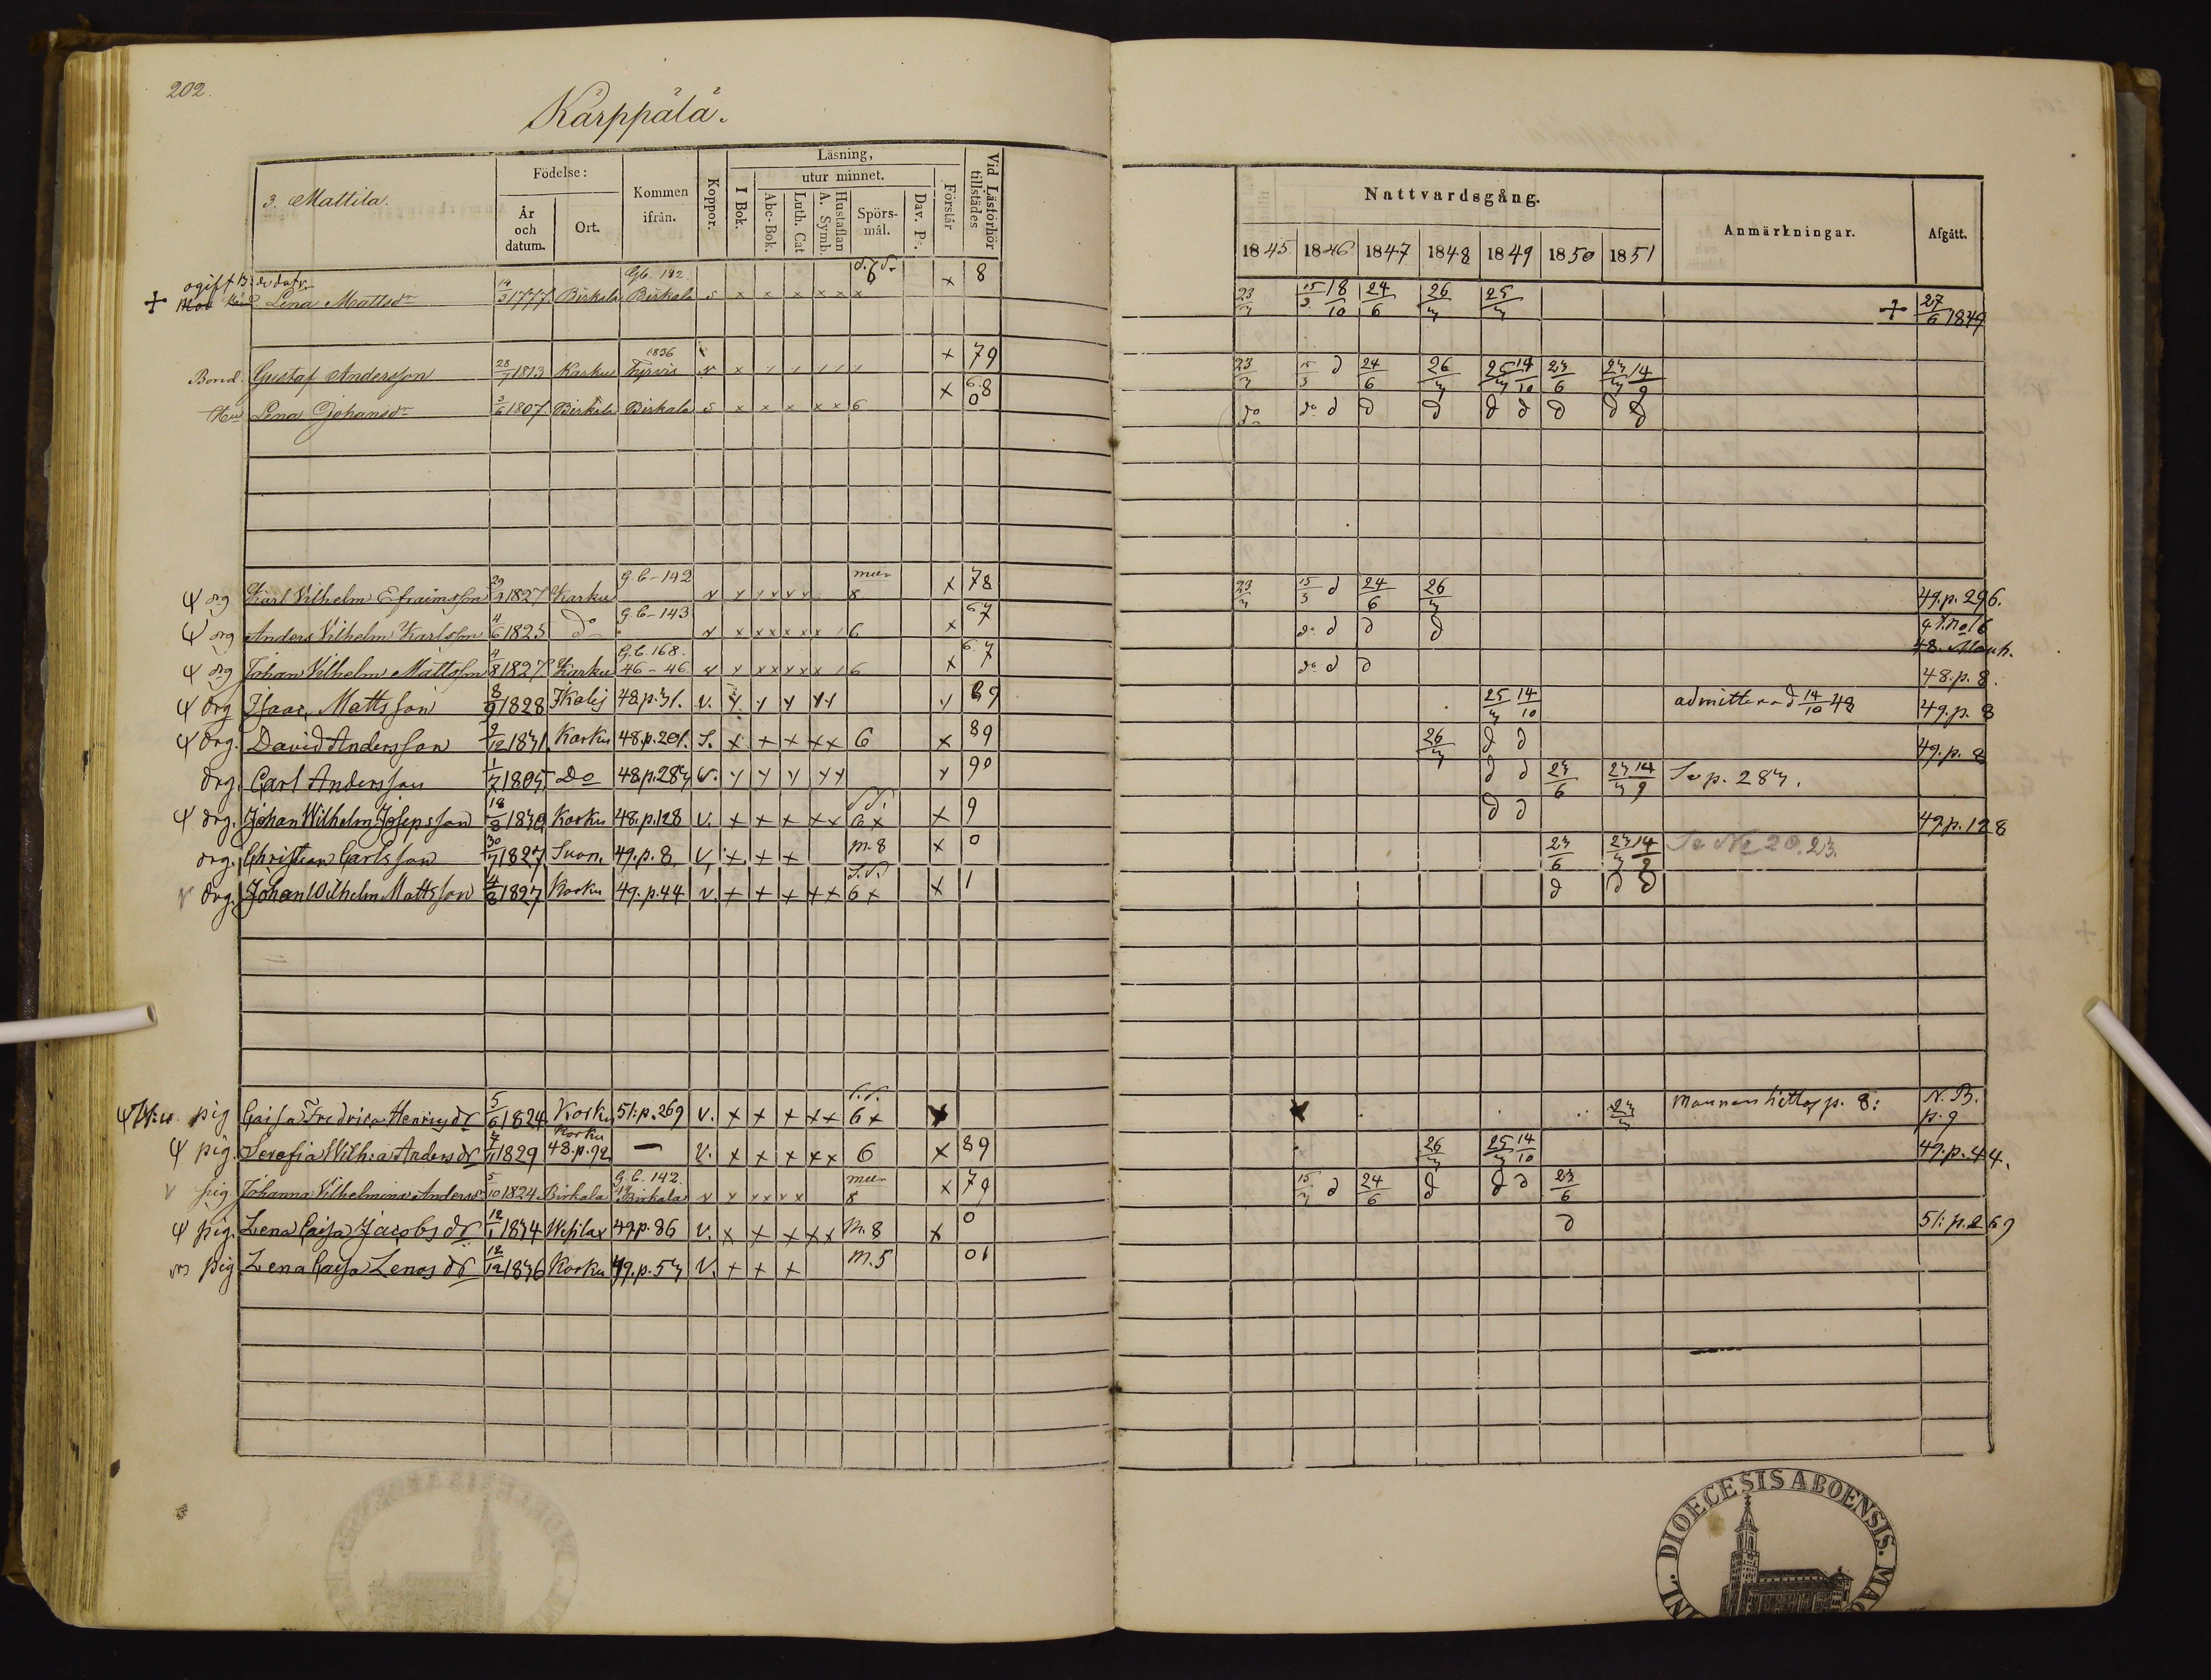 202.
Kärppälä.
3. Mattila.
Födelse:
År och datum.
Ort.
Kommen ifrån.
Koppor.
Läsning,
I Bok.
utur minnet.
Abc-Bok.
Luth. Cat
Hustaflan A. Symb.
Spörs-mål.
Dav. Ps.
Förstår
Vid Läsförhör tillstädes
Nattvardsgång.
1845 1846 1847 1848 1849 1850 1851
Anmärkningar.
Afgått.
ogift
Lena Mattsdr 14/3 1777 Birkala Gb. 142 Birkala s x x x x x x 6 x 8 15/3 18/10 24/6 26/3 25/3 + 27/6 1849
Bond. Gustaf Andersson 28/7 1813 Karku 1836 Tyrvis v x x 79 23/3 15/3 d 24/6 26/3 25/3 14/10 23/6 23/3 14/9
Hu Lena Johansdr 3/6 1807 Birkala Birkala s x x x x x 6 x 68 0 do do d d d d d d d d
drg Karl Vilhelm Efraimsson 29/9 1827 Karku G.b-142 v 8 x 78 23/3 15/3 d 24/6 26/3 49.p.296.
drg Anders Vilhelm Karlsson 4/6 1825 do G.b-143 v x x x x x x 6 x 67 do d d d
48. Mouh.
drg Johan Vilhelm Mattsson 4/8 1827 Karku G.b.168. 46-46 v x x x x x 6 x 67 do d d 48.p.8.
drg Isaac Mattsson 8/9 1828 Ikalis 48.p.31. v. 89 25/3 14/10 admitterad 14/10 48 49.p.8
drg. David Andersson 2/12 1831. Karku 48.p.201. S. x x x x x 6 x 89 26/3 d d 49.p.8
drg. Carl Andersson 1/7 1805 Do 48.p.283 v. 90 d d 23/6 23/3 14/9 Se p. 283.
drg. Johan Wilhelm Josepsson 18/8 1830 Karku 48.p.128 v. x x x x x 6 x x 9 d d 49.p.128
drg. Christian Carlsson 30/7 1827 Suon. 49.p.8. v. x x x m.8 x 0 23/6 23/3 14/9 Se No 20.23.
drg. Johan Wilhelm Mattsson 4/8 1827 Karku 49.p.44 v. x x x x x 6 x x 1 d d d
pig Caisa Fredrica Henricsdr 5/6 1824 Karku 51:p.269 v. x x x x x 6 x 23/3 mannen hittas p. 8: N.B. p.9
pig. Serafia Wilh:a Andersdr 7/11 1829 Karku 48.p.92 — v. x x x x x 6 x 89 26/3 25/3 14/10 49.p.44.
pig Johanna Vilhelmina Andersdr 5/10 1824 Birkala G.b.142. Birkala v 8 x 79 15/3 d 24/6 d d d 23/6
pig. Lena Caisa Jacobsdr 12/1 1834 Wesilax 49.p.86 v. x x x x x m.8 x 0 d 51:p.269
pig. Lena Caisa Lenasdr 12/12 1836 Karku 49.p.53 v. x x x m.5 01
DIOECESIS ABOENSIS.